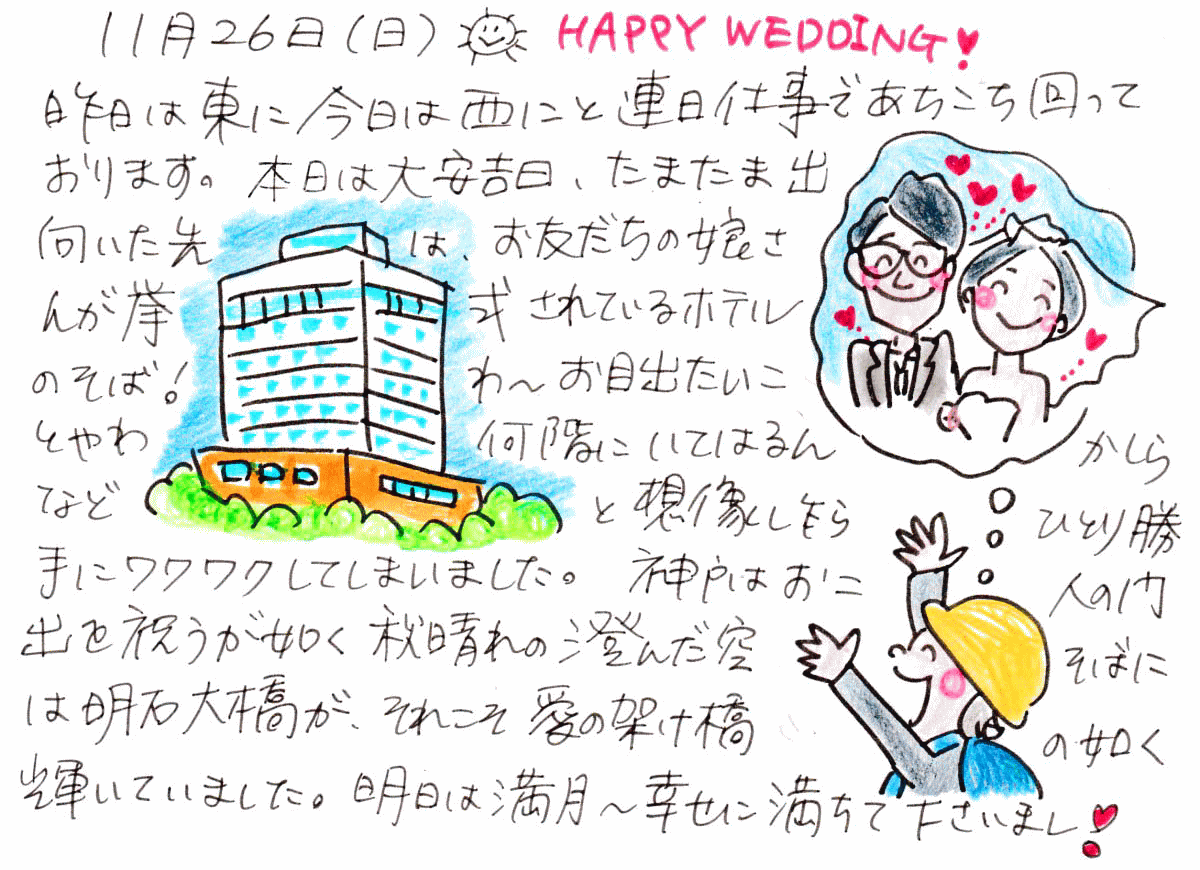 11月26日(日) HAPPY WEDDING!
昨日は東に今日は西にと連日仕事であちこち回って
おります。本日は大安吉日、たまたま出
向いた先は、お友だちの娘さ
んが挙式されているホテル
のそば!わ〜お目出たいこ
とやわ何階にいてはるんかしら
などと想像しながらひとり勝
手にワクワクしてしまいました。神戸はお二人の門
出を祝うが如く秋晴れの澄んだ空そばに
は明石大橋が、それこそ愛の架け橋の如く
輝いていました。明日は満月〜幸せに満ちて下さいまし!